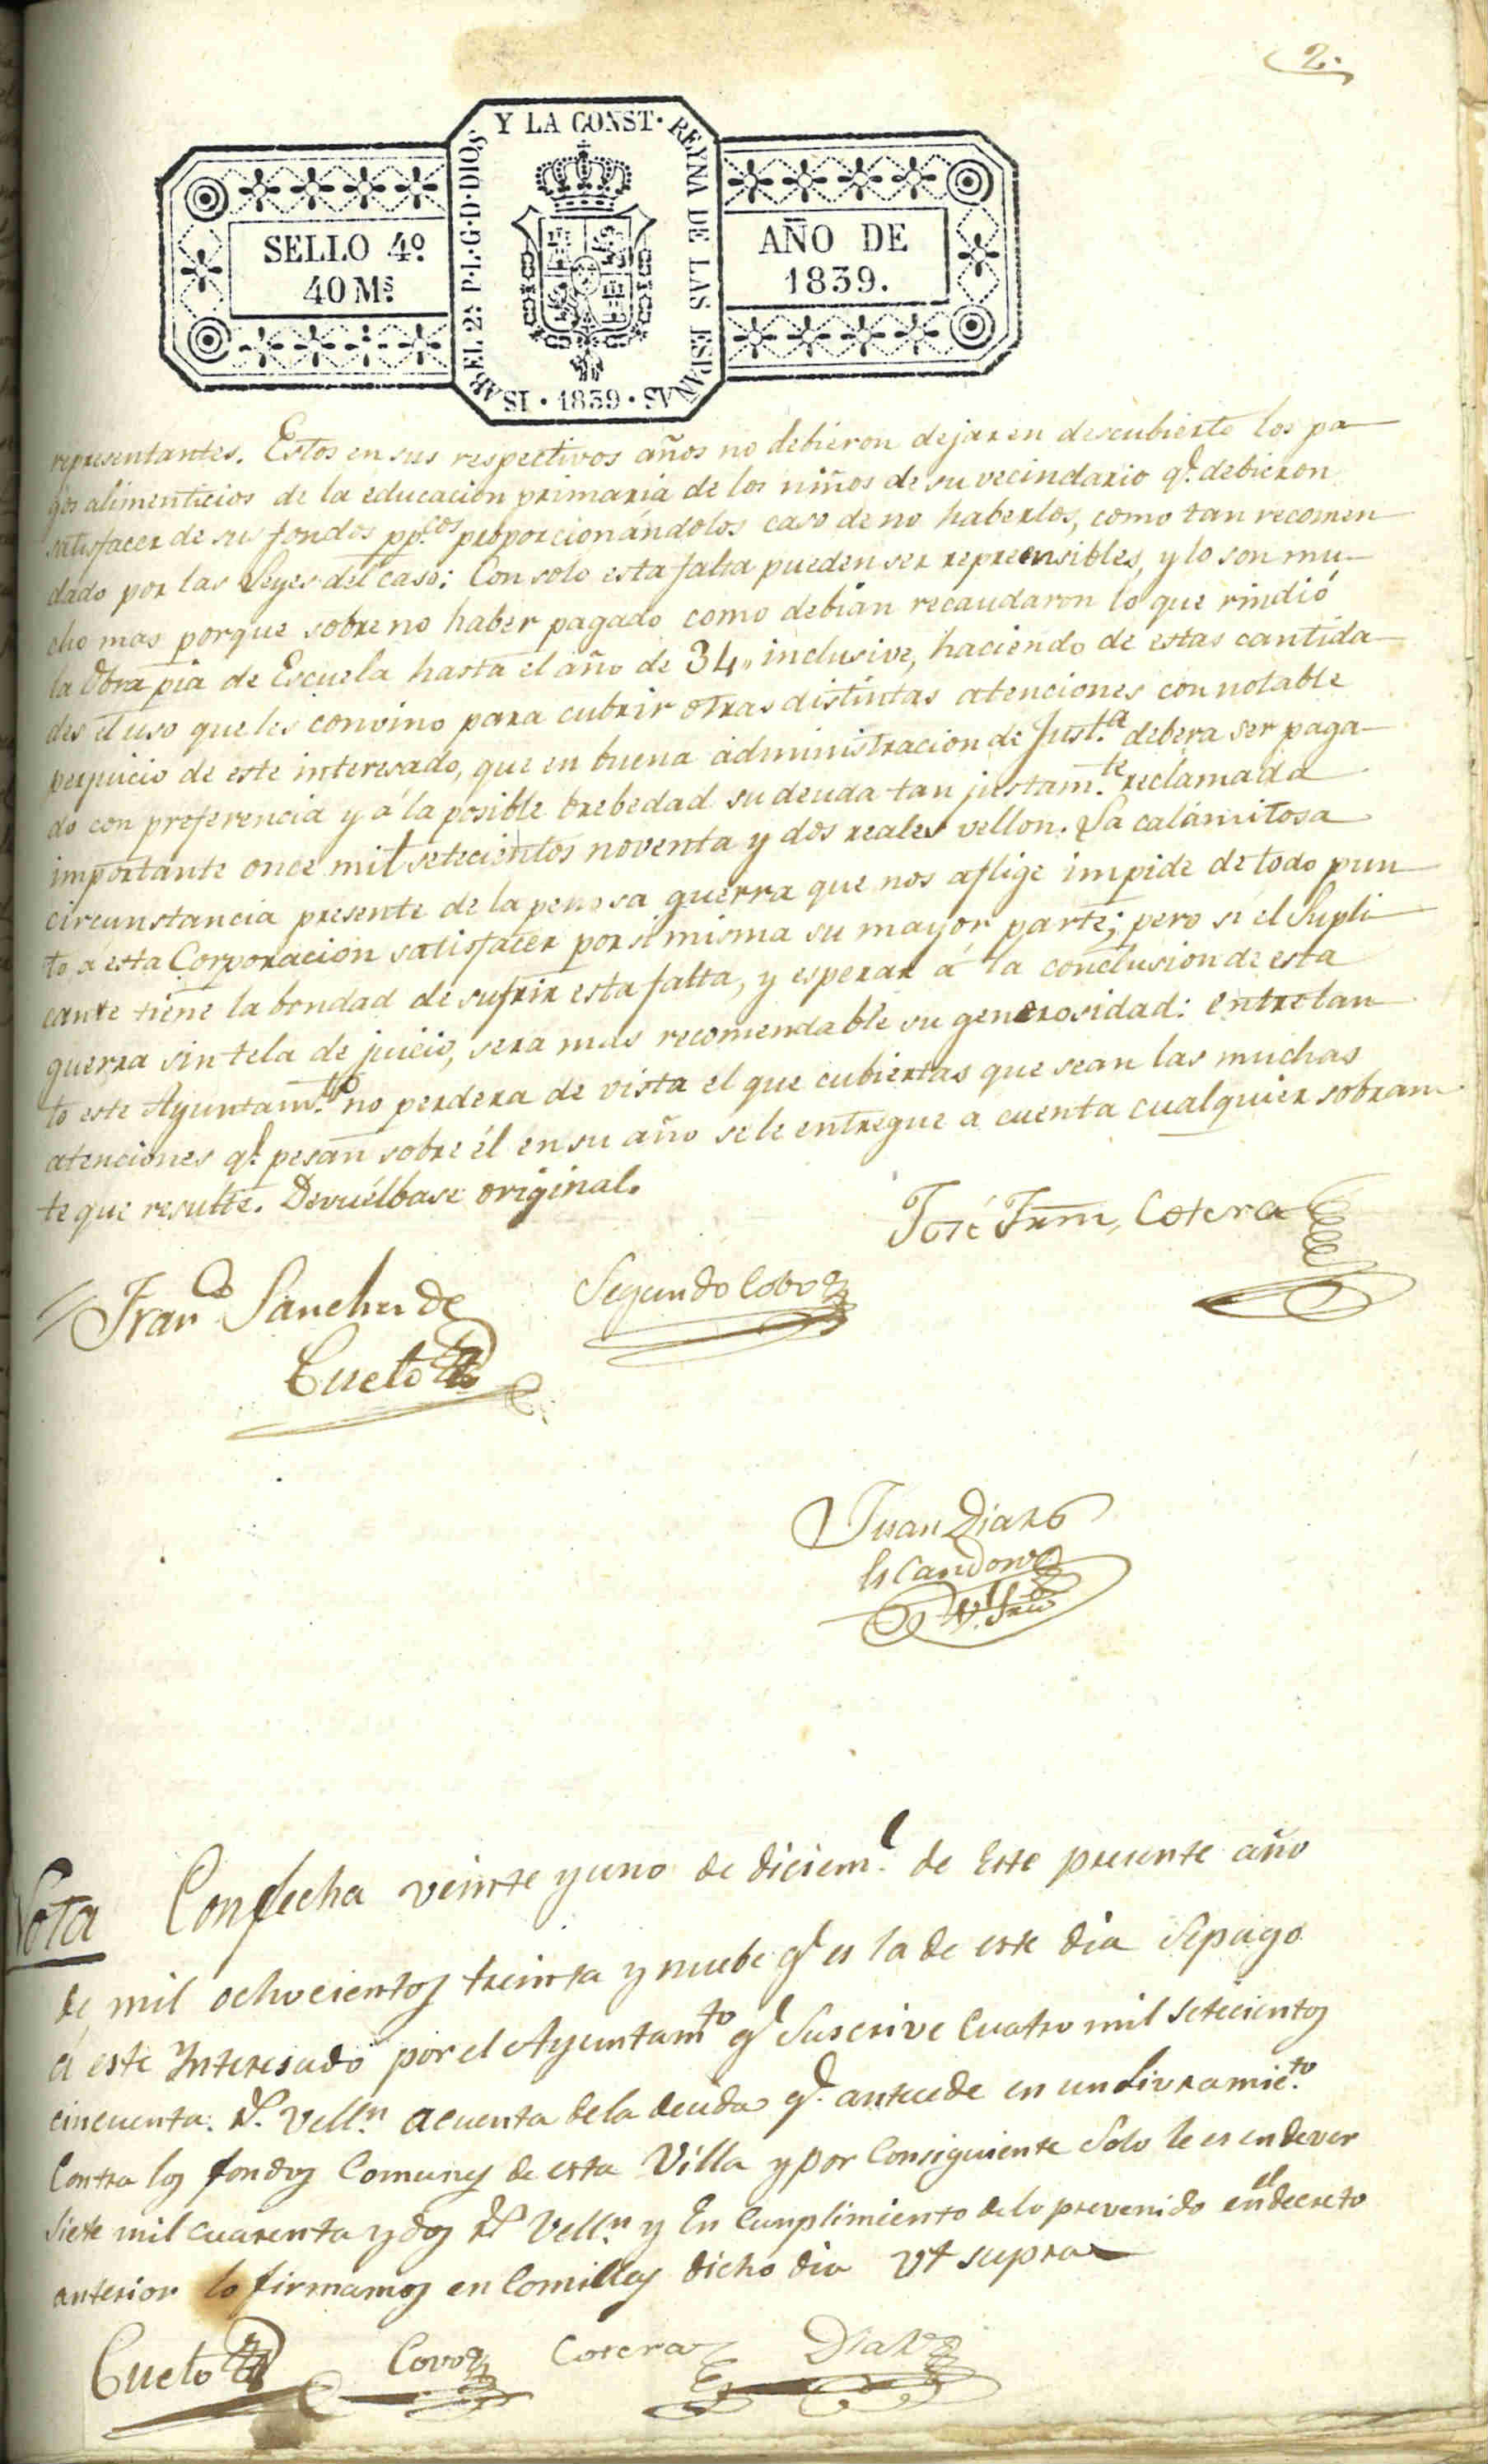 2.
Y LA CONST. REYNA DE LAS ESPAÑAS · 1839 · ISABEL 2ª P. L. G. D. DIOS
SELLO 4º
40 Ms
AÑO DE
1839.
representantes. Estos en sus respectivos años no debieron dejar en descubierto los pa-
gos alimenticios de la educacion primaria de los niños de su vecindario q.e debieron
satisfacer de sus fondos pp.cos proporcionándolos caso de no haberlos, como tan recomen
dado por las Leyes del caso: Con solo esta falta pueden ser repreensibles, y lo son mu-
cho mas porque sobre no haber pagado como debian recaudaron lo que rindió
la Obra pia de Escuela hasta el año de 34,, inclusive, haciendo de estas cantida-
des el uso que les convino para cubrir otras distintas atenciones con notable
perjuicio de este interesado, que en buena administracion de Just.a debera ser paga-
do con preferencia y á la posible brebedad su deuda tan justam.te reclamada
importante once mil setecientos noventa y dos reales vellon. La calámitosa
circunstancia presente de la penosa guerra que nos aflige impide de todo pun
to, á esta Corporacion satisfacer por si misma su mayor parte; pero si el Supli-
cante tiene la bondad de sufrir esta falta, y esperar á la conclusion de esta
guerra sin tela de juicio, sera mas recomendable su generosidad: entretan-
to este Ayuntam.to no perdera de vista el que cubiertas que sean las muchas
atenciones q.e pesan sobre él en su año se le entregue a cuenta cualquier sobran-
te que resulte. Devuélbase original.
José Frnn, Cotera
Fran.co Sanchez de
Cueto
Segundo Cobo
Juan Diaz
Escandon
Nota Con fecha veinte y uno de diciem.e de este presente año
de mil ochocientos treinta y nuebe q.e es la de este dia Se pago
á este Interesado por el Ayuntam.to q.e Suscrive Cuatro mil Setecientos
cincuenta r.s Vell.n acuenta de la deuda q.e antecede en un Livramie.to
Contra los fondos Comunes de esta Villa y por Consiguiente Solo le es en dever
Siete mil cuarenta y dos r.s Vell.n y En Cumplimiento de lo prevenido en el decreto
anterior lo firmamos en Comillas dicho dia Ut supra
Cueto Covo Cotera Diaz